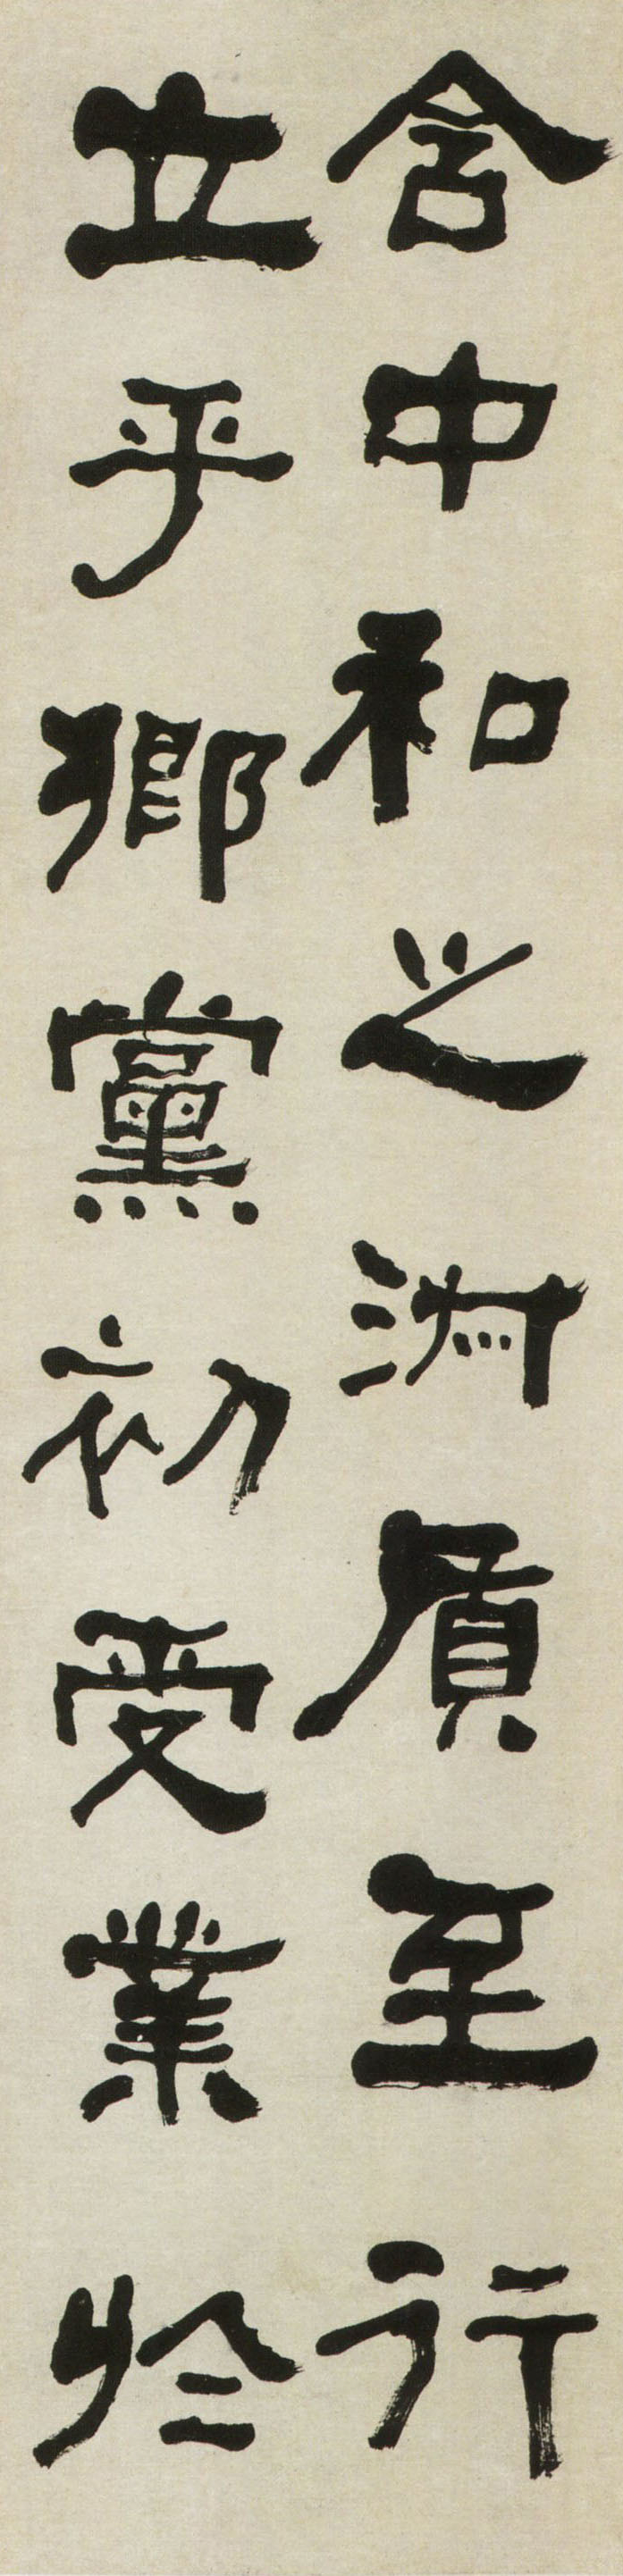 含中和之淑質至行
立乎鄉黨初受業於